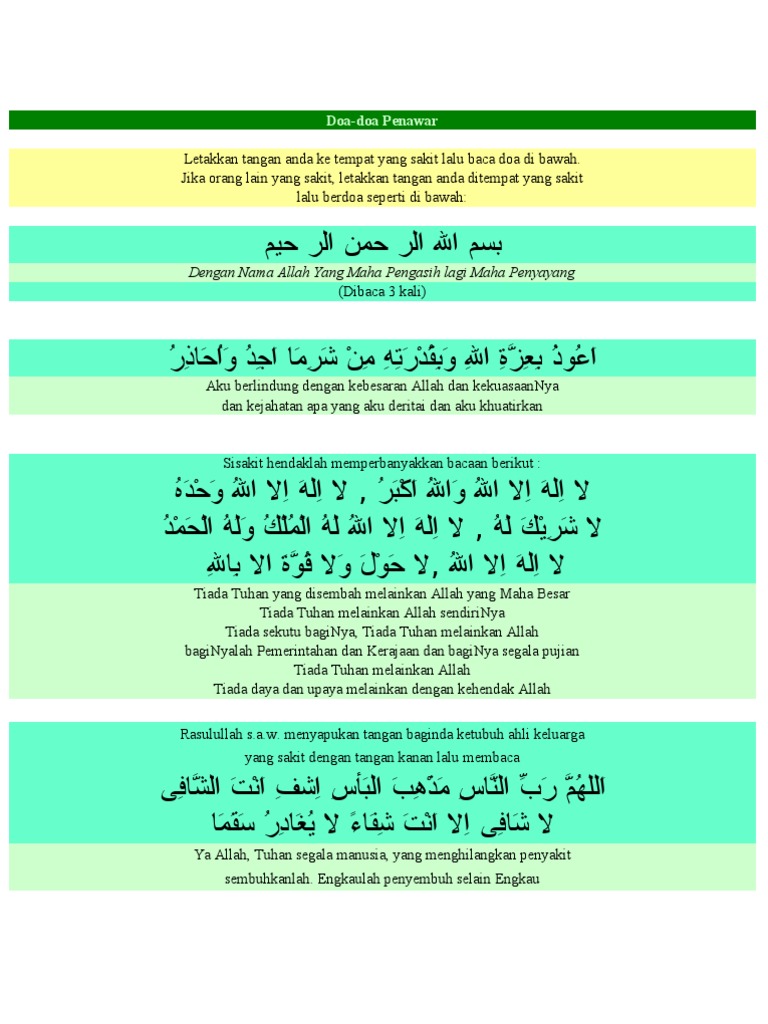 Doa-doa Penawar
Letakkan tangan anda ke tempat yang sakit lalu baca doa di bawah.
Jika orang lain yang sakit, letakkan tangan anda ditempat yang sakit
lalu berdoa seperti di bawah:
بسم الله الر حمن الر حيم
Dengan Nama Allah Yang Maha Pengasih lagi Maha Penyayang
(Dibaca 3 kali)
اَعُوذُ بِعِزَّةِ اللهِ وَبِقُدْرَتِهِ مِنْ شَرِمَا اَجِدُ وَاُحَاذِرُ
Aku berlindung dengan kebesaran Allah dan kekuasaanNya
dan kejahatan apa yang aku deritai dan aku khuatirkan
Sisakit hendaklah memperbanyakkan bacaan berikut :
لا اِلهَ اِلا اللهُ وَاللهُ اَكْبَرُ , لا اِلهَ اِلا اللهُ وَحْدَهُ
لا شَرِيْكَ لهُ , لا اِلهَ اِلا اللهُ لهُ المُلْكُ وَلهُ الْحَمْدُ
لا اِلهَ اِلا اللهُ ,لا حَوْلَ وَلا قُوَّة الا بِاللهِ
Tiada Tuhan yang disembah melainkan Allah yang Maha Besar
Tiada Tuhan melainkan Allah sendiriNya
Tiada sekutu bagiNya, Tiada Tuhan melainkan Allah
bagiNyalah Pemerintahan dan Kerajaan dan bagiNya segala pujian
Tiada Tuhan melainkan Allah
Tiada daya dan upaya melainkan dengan kehendak Allah
Rasulullah s.a.w. menyapukan tangan baginda ketubuh ahli keluarga
yang sakit dengan tangan kanan lalu membaca
اَللهُمَّ رَبِّ النَّاسِ مَذْهِبَ البَأسِ اِشفِ اَنْتَ الشَّافِى
لا شَافِى اِلا اَنْتَ شِفَاءً لا يُغَادِرُ سَقَمَا
Ya Allah, Tuhan segala manusia, yang menghilangkan penyakit
sembuhkanlah. Engkaulah penyembuh selain Engkau